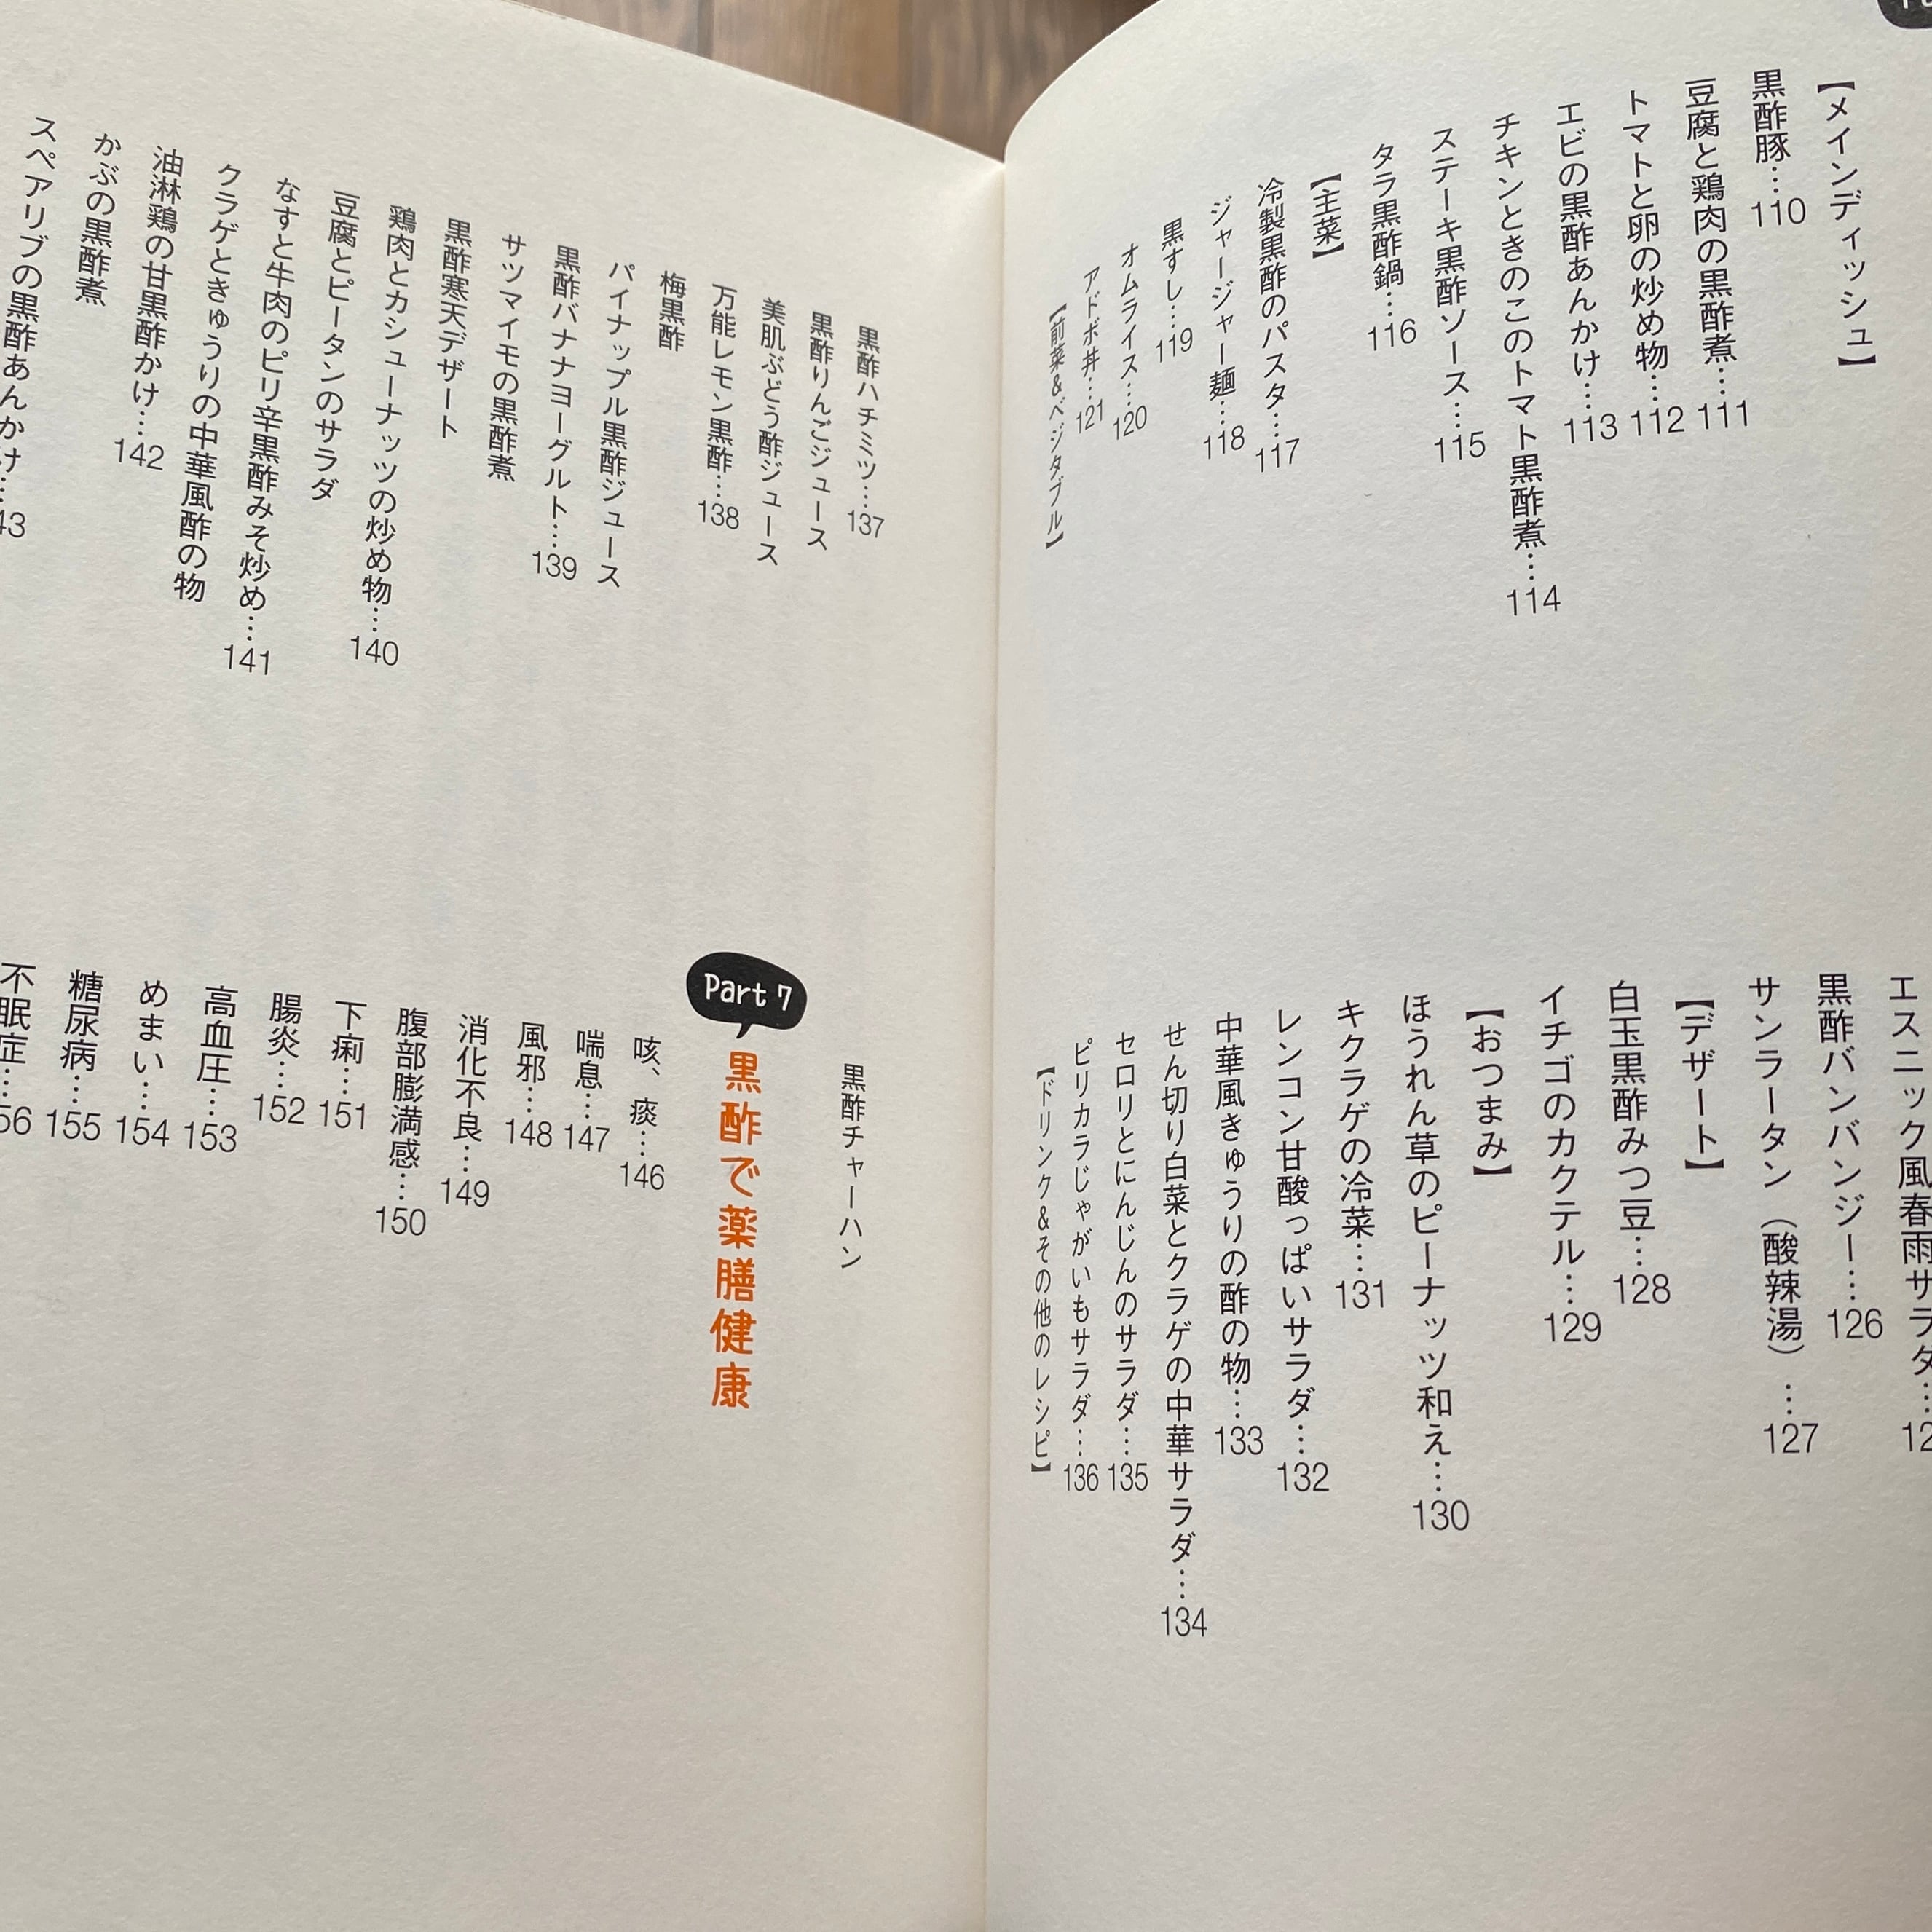 【メインディッシュ】
黒酢豚…110
豆腐と鶏肉の黒酢煮…111
トマトと卵の炒め物…112
エビの黒酢あんかけ…113
チキンときのこのトマト黒酢煮…114
ステーキ黒酢ソース…115
タラ黒酢鍋…116
【主菜】
冷製黒酢のパスタ…117
ジャージャー麺…118
黒すし…119
オムライス…120
アドボ丼…121
【前菜&ベジタブル】
エスニック風春雨サラダ…
黒酢バンバンジー…126
サンラータン（酸辣湯）…127
【デザート】
白玉黒酢みつ豆…128
イチゴのカクテル…129
【おつまみ】
ほうれん草のピーナッツ和え…130
キクラゲの冷菜…131
レンコン甘酸っぱいサラダ…132
中華風きゅうりの酢の物…133
せん切り白菜とクラゲの中華サラダ…134
セロリとにんじんのサラダ…135
ピリカラじゃがいもサラダ…136
【ドリンク&その他のレシピ】
黒酢ハチミツ…137
黒酢りんごジュース
美肌ぶどう酢ジュース
万能レモン黒酢…138
梅黒酢
パイナップル黒酢ジュース
黒酢バナナヨーグルト…139
サツマイモの黒酢煮
黒酢寒天デザート
鶏肉とカシューナッツの炒め物…140
豆腐とピータンのサラダ
なすと牛肉のピリ辛黒酢みそ炒め…141
クラゲときゅうりの中華風酢の物
油淋鶏の甘黒酢かけ…142
かぶの黒酢煮
スペアリブの黒酢あんかけ…
黒酢チャーハン
Part 7
黒酢で薬膳健康
咳、痰…146
喘息…147
風邪…148
消化不良…149
腹部膨満感…150
下痢…151
腸炎…152
高血圧…153
めまい…154
糖尿病…155
不眠症…